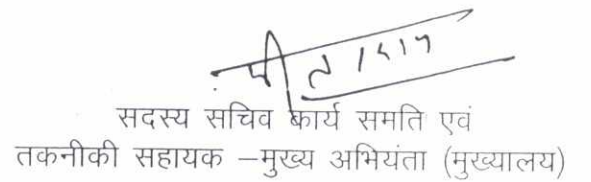 सदस्य सचिव कार्य समति एवं
तकनीकी सहायक –मुख्य अभियंता (मुख्यालय)